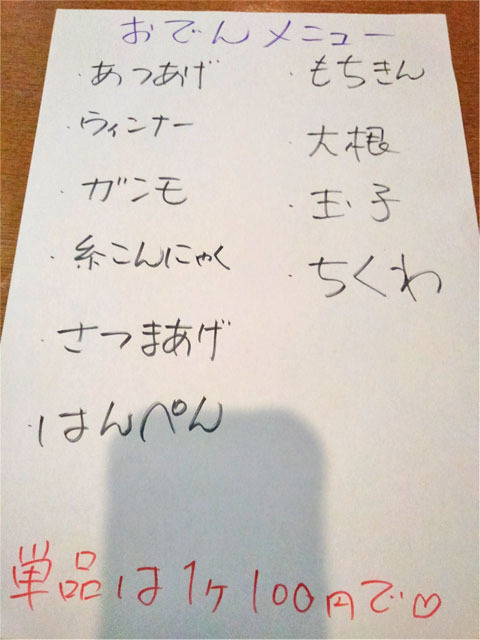 おでんメニュー
・あつあげ
・ウィンナー
・ガンモ
・糸こんにゃく
・さつまあげ
・はんぺん
・もちきん
・大根
・玉子
・ちくわ
単品は1ヶ100円で♡